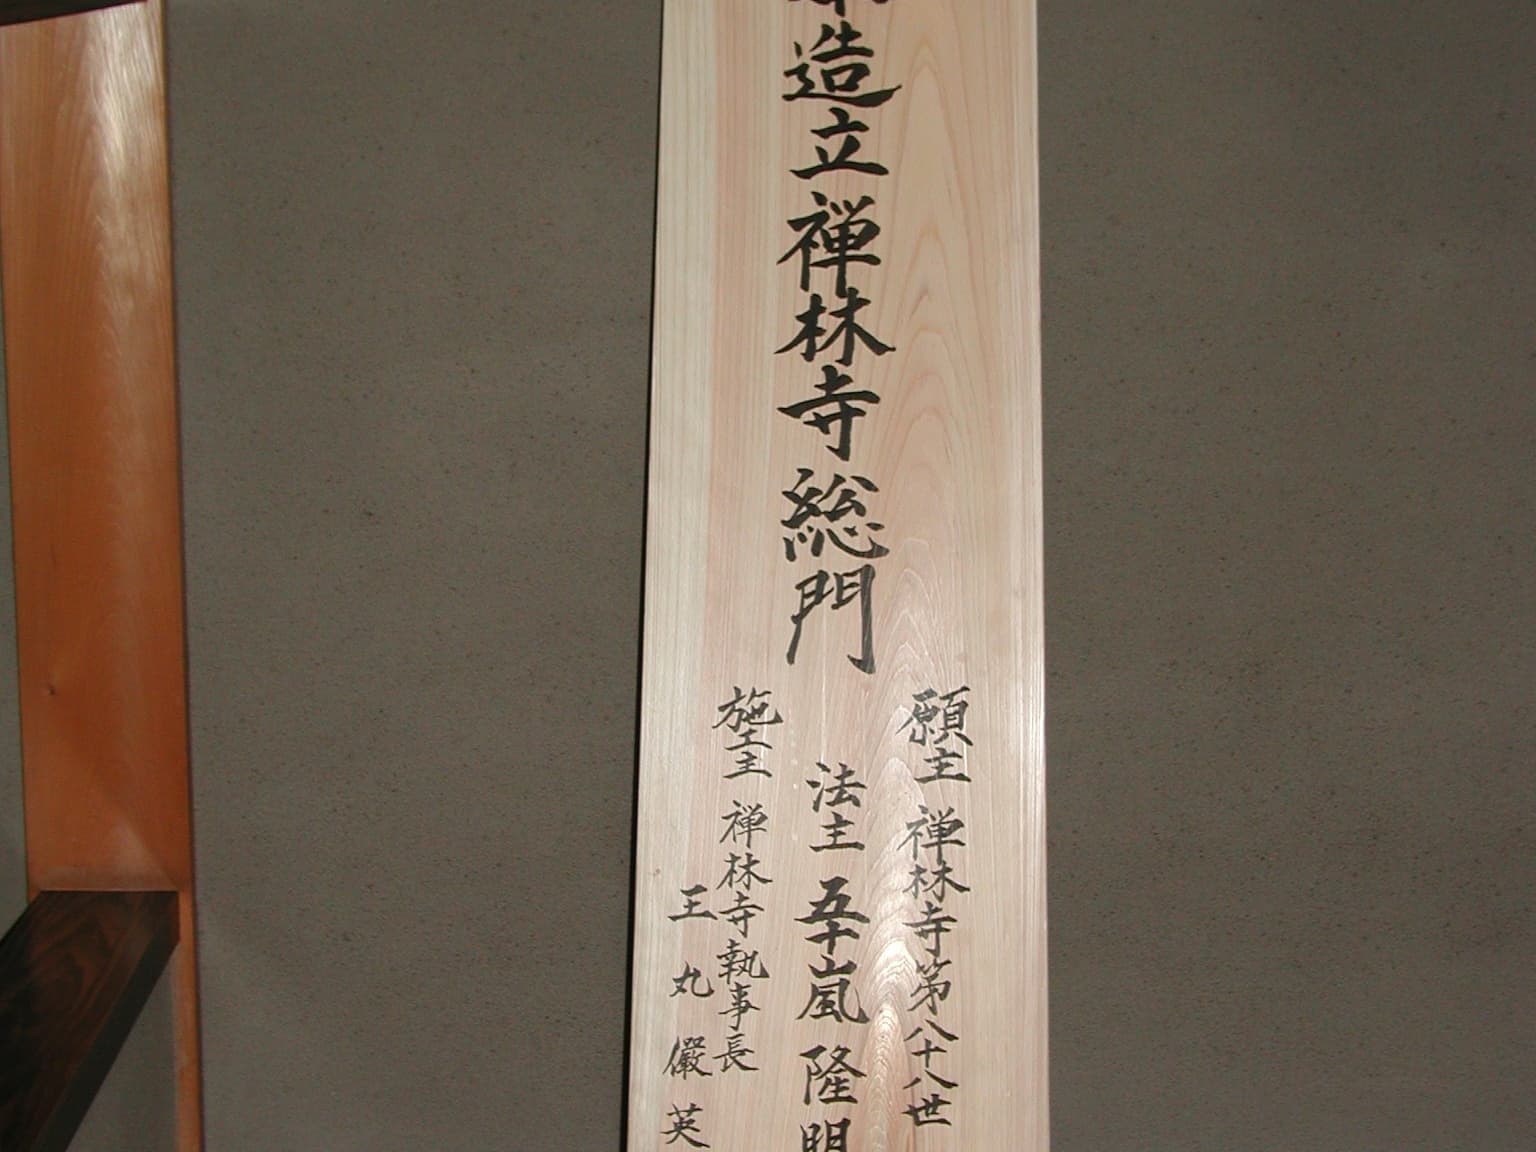 造立禅林寺総門
願主 禅林寺第八十八世
法主 五十嵐 隆明
施主 禅林寺執事長
王丸儼英